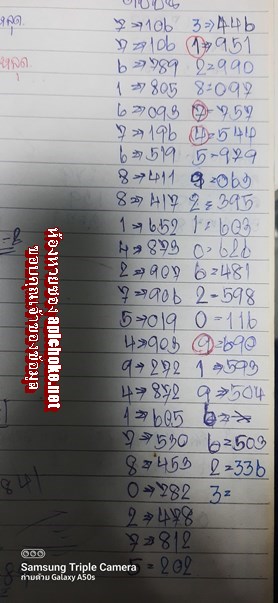 7→106 3→446
7→106 1→951
6→789 2→990
1→805 8=092
6→093 2→757
7→196 4→544
6→519 5→929
8→411 9=063
8→417 2=395
1→652 1=603
4→873 0→626
2→907 6=481
7→906 2→598
5→019 0→116
4→903 9→690
9→272 1→593
4→872 9→504
1→605
7→530 6=503
8→453 2=336
0→782 3=
2→478
7→812
5=202
ห้องหวยของ aplchoke.net
ขอบคุณเจ้าของข้อมูล
Samsung Triple Camera
ถ่ายด้วย Galaxy A50s